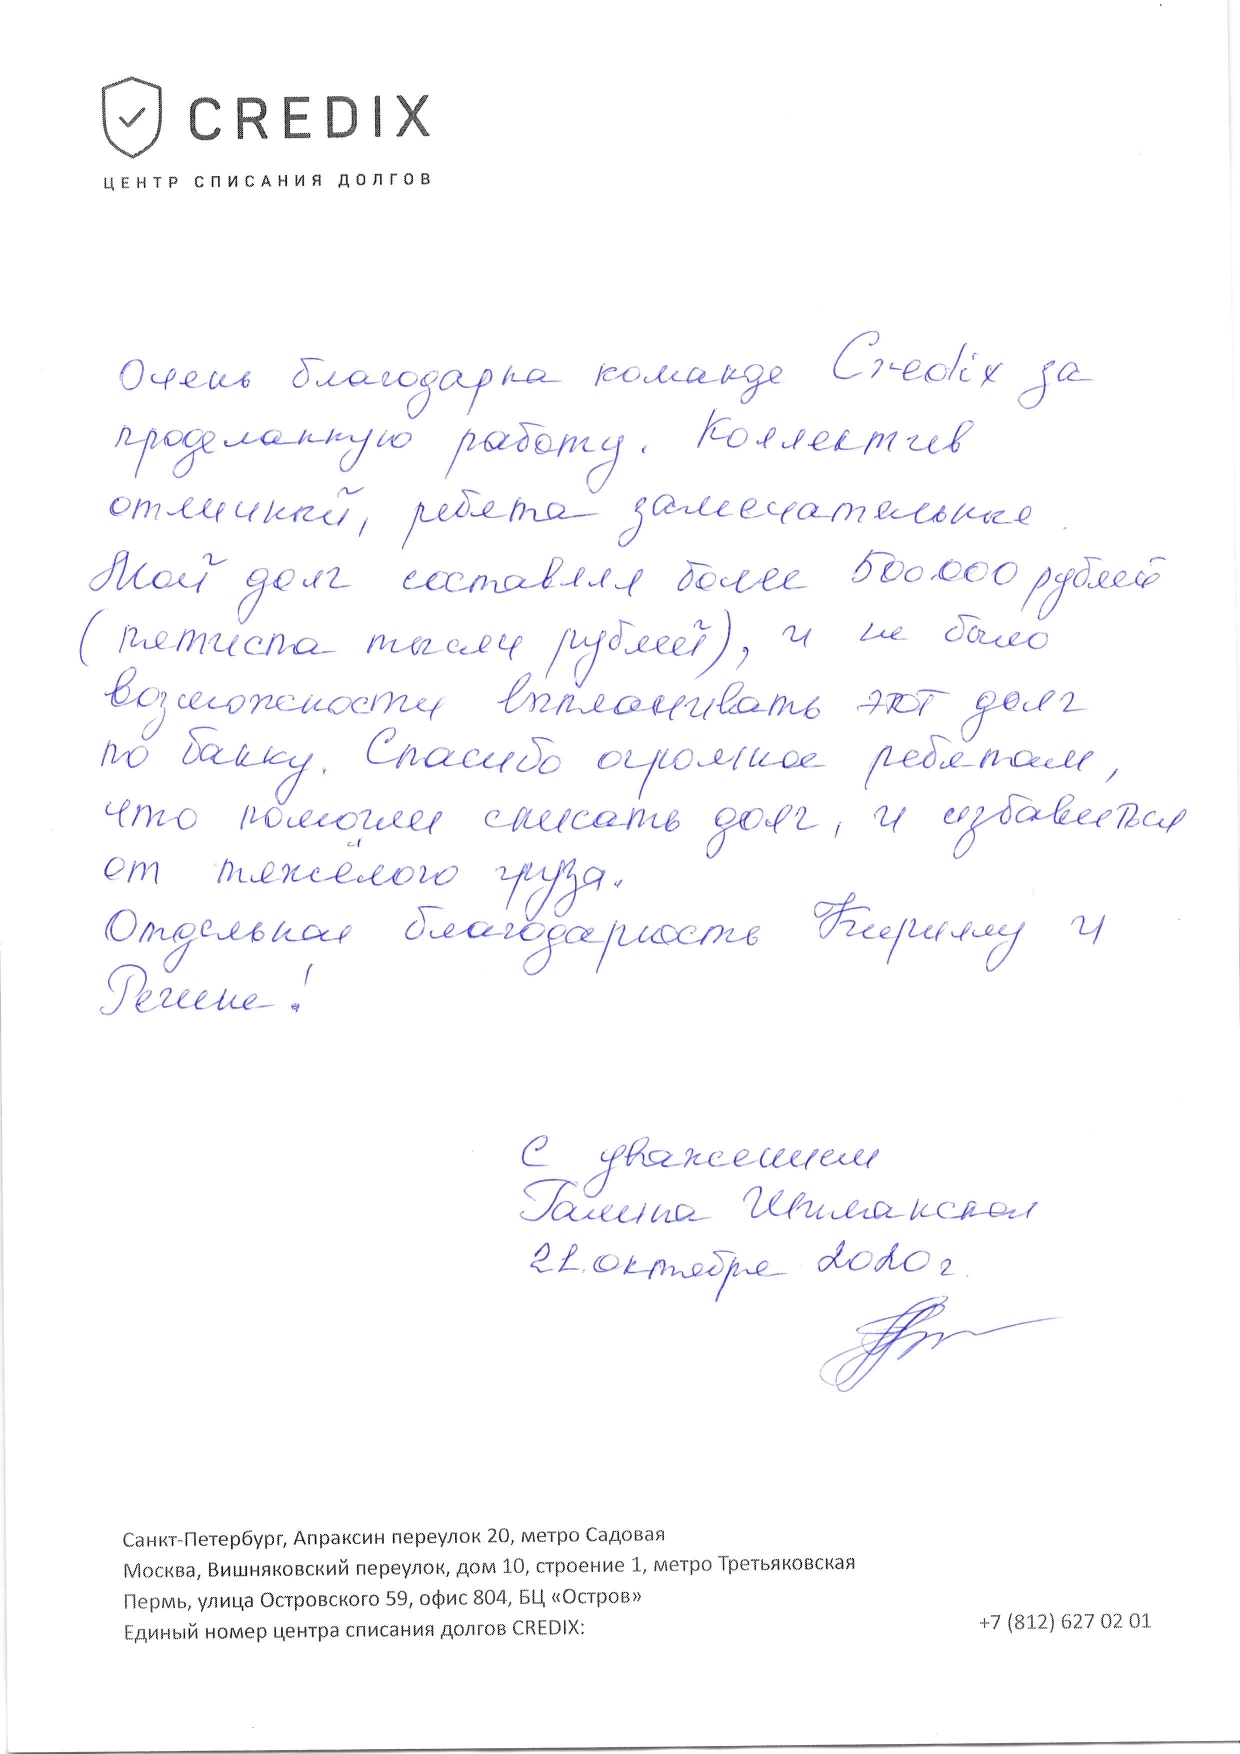 CREDIX
ЦЕНТР СПИСАНИЯ ДОЛГОВ
Очень благодарна команде Credix за
проделанную работу. Коллектив
отличный, ребята замечательные.
Мой долг составлял более 500.000 рублей
(пятиста тысяч рублей), и не было
возможности выплачивать этот долг
по банку. Спасибо огромное ребятам,
что помогли списать долг, и избавиться
от тяжёлого груза.
Отдельная благодарность Кириллу и
Регине!
С уважением
Галина Шиманская
21. октября 2020 г.
Санкт-Петербург, Апраксин переулок 20, метро Садовая
Москва, Вишняковский переулок, дом 10, строение 1, метро Третьяковская
Пермь, улица Островского 59, офис 804, БЦ «Остров»
Единый номер центра списания долгов CREDIX: +7 (812) 627 02 01